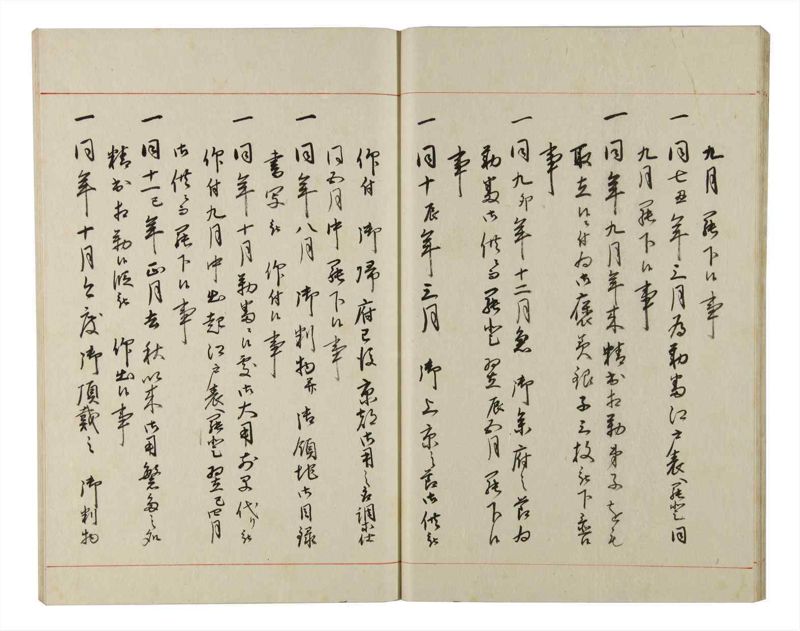 九月罷下候事
一同七丑年三月為勤番江戸表へ罷登同
九月罷下候事
一同年九月年来精勤相勤弟子をも
取立候ニ付為御褒美銀子三枚被下置候
事
一同九卯年十二月 御参府之節為
勤番御供ニ而罷登翌辰五月罷下候
事
一同十辰年三月 御上京之節御供被
仰付 御帰府已後京都御用之
同五月中罷下候事
一同年八月 御判物并御領地御目録
書写被 仰付候事
一同年十月勤番候処御大用前早代り被
仰付九月中出起江戸表へ罷登翌巳四月
御供ニ而罷下候事
一同十一巳年正月去秋以来御用繁多之処
精出相勤候段被 仰出候事
一同年十月今度御頂戴之 御判物